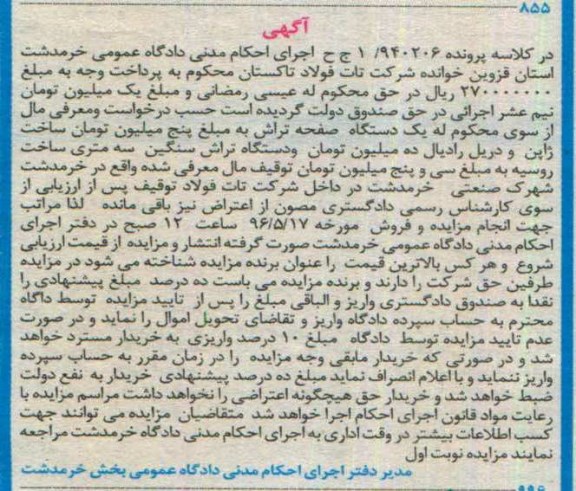 ۸۵۵
آگهی
در کلاسه پرونده ۹۴۰۲۰۶/ ۱ ج ح اجرای احکام مدنی دادگاه عمومی خرمدشت
استان قزوین خوانده شرکت تات فولاد تاکستان محکوم به پرداخت وجه به مبلغ
۲۷۰۰۰۰۰۰۰ ریال در حق محکوم له عیسی رمضانی و مبلغ یک میلیون تومان
نیم عشر اجرائی در حق صندوق دولت گردیده است حسب درخواست ومعرفی مال
از سوی محکوم له یک دستگاه صفحه تراش به مبلغ پنج میلیون تومان ساخت
ژاپن و دریل رادیال ده میلیون تومان ودستگاه تراش سنگین سه متری ساخت
روسیه به مبلغ سی و پنج میلیون تومان توقیف مال معرفی شده واقع در خرمدشت
شهرک صنعتی خرمدشت در داخل شرکت تات فولاد توقیف پس از ارزیابی از
سوی کارشناس رسمی دادگستری مصون از اعتراض نیز باقی مانده لذا مراتب
جهت انجام مزایده و فروش مورخه ۹۶/۵/۱۷ ساعت ۱۲ صبح در دفتر اجرای
احکام مدنی دادگاه عمومی خرمدشت صورت گرفته انتشار و مزایده از قیمت ارزیابی
شروع و هر کس بالاترین قیمت را عنوان برنده مزایده شناخته می شود در مزایده
طرفین حق شرکت را دارند و برنده مزایده می باست ده درصد مبلغ پیشنهادی را
نقدا به صندوق دادگستری واریز و الباقی مبلغ را پس از تایید مزایده توسط داگاه
محترم به حساب سپرده دادگاه واریز و تقاضای تحویل اموال را نماید و در صورت
عدم تایید مزایده توسط دادگاه مبلغ ۱۰ درصد واریزی به خریدار مسترد خواهد
شد و در صورتی که خریدار مابقی وجه مزایده را در زمان مقرر به حساب سپرده
واریز ننماید و یا اعلام انصراف نماید مبلغ ده درصد پیشنهادی خریدار به نفع دولت
ضبط خواهد شد و خریدار حق هیچگونه اعتراضی را نخواهد داشت مراسم مزایده با
رعایت مواد قانون اجرای احکام اجرا خواهد شد متقاضیان مزایده می توانند جهت
کسب اطلاعات بیشتر در وقت اداری به اجرای احکام مدنی دادگاه خرمدشت مراجعه
نمایند مزایده نوبت اول
مدیر دفتر اجرای احکام مدنی دادگاه عمومی بخش خرمدشت